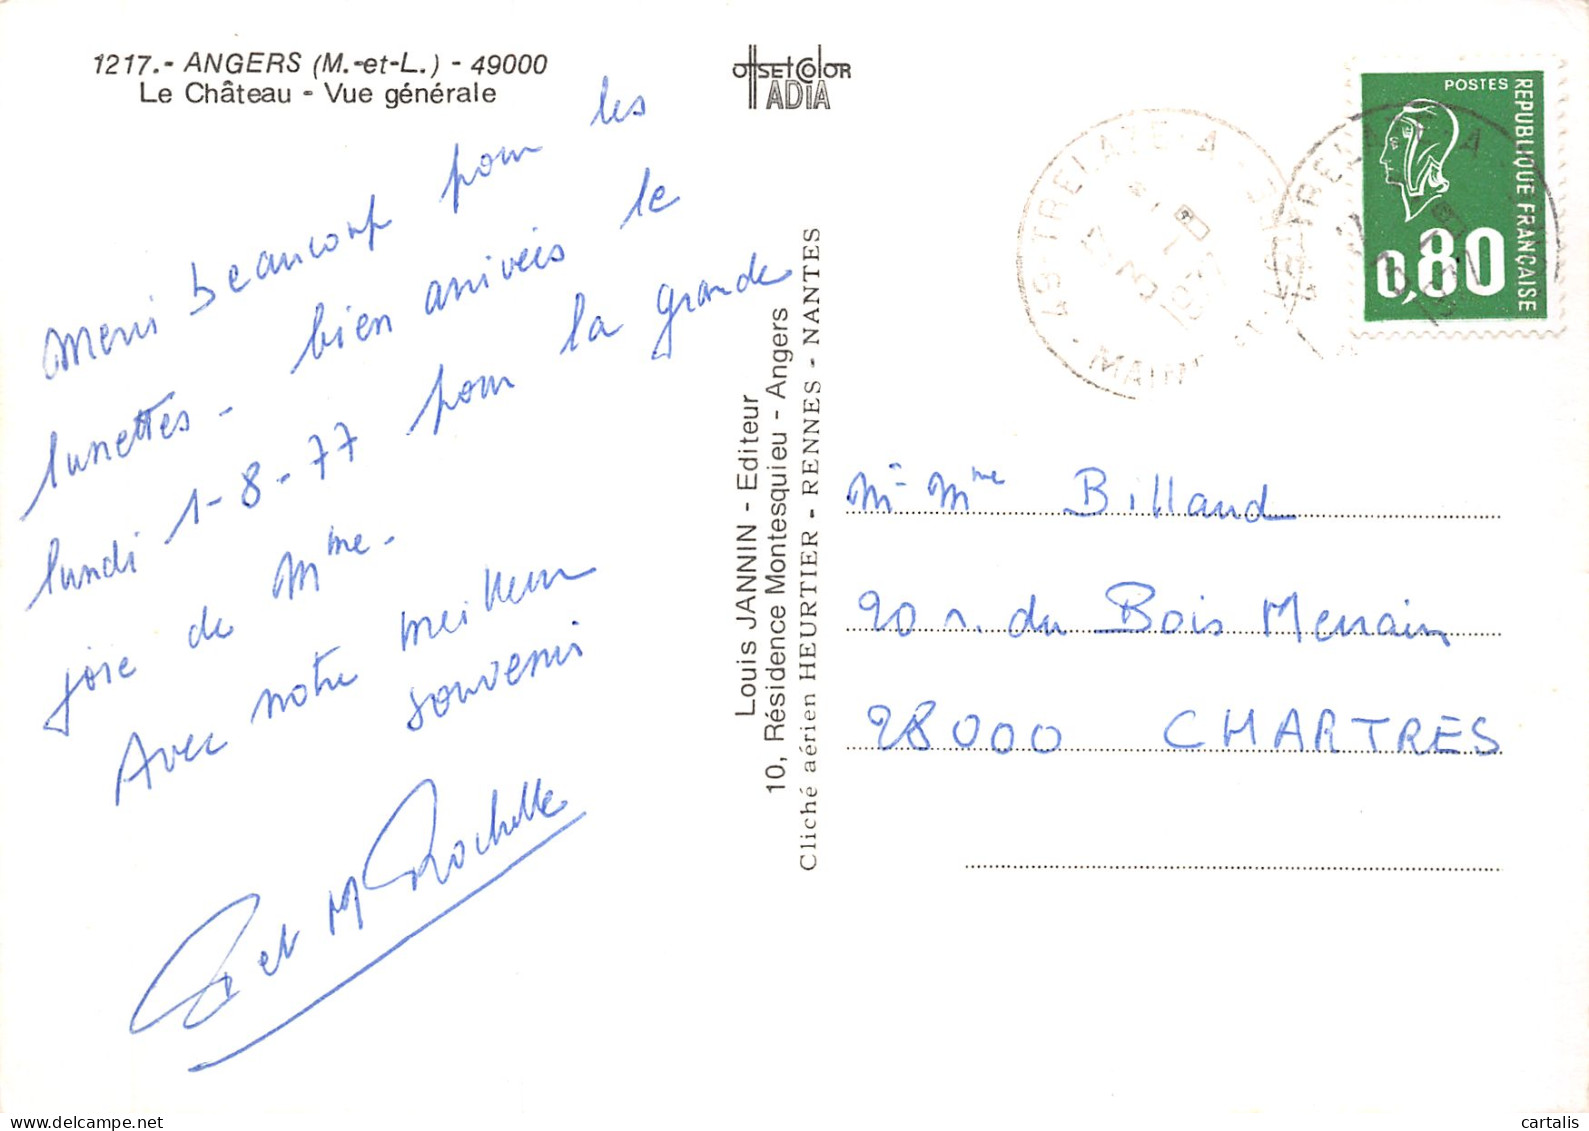 1217.- ANGERS (M.-et-L.) - 49000
Le Château - Vue générale
offset color
IADIA
Merci beaucoup pour les
lunettes - bien arrivées le
lundi 1-8-77 pour la grande
joie de Mme.
Avec notre meilleur
souvenir
et M Rochelle
Louis JANNIN - Editeur
10, Résidence Montesquieu - Angers
Cliché aérien HEURTIER - RENNES - NANTES
49-TRELAZE-A
MAINE
POSTES
REPUBLIQUE FRANÇAISE
0,80
M- Mme Billaud
20 r. du Bois Merrain
28000 CHARTRES
cartalis